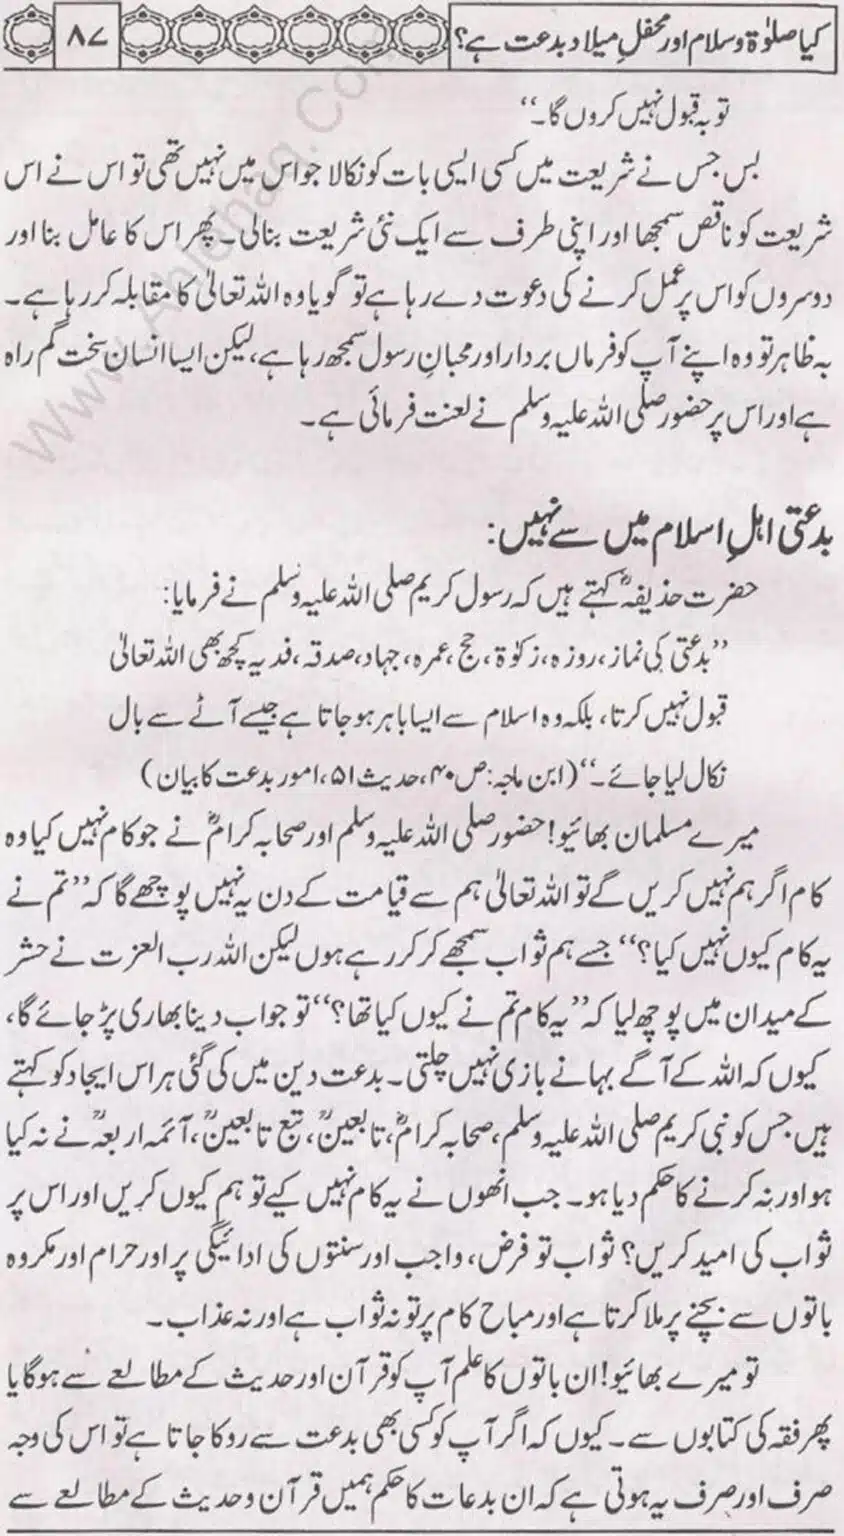 کیا صلوٰۃ وسلام اور محفلِ میلاد بدعت ہے؟
۸۷
توبہ قبول نہیں کروں گا۔‘‘
بس جس نے شریعت میں کسی ایسی بات کو نکالا جو اس میں نہیں تھی تو اس نے اس
شریعت کو ناقص سمجھا اور اپنی طرف سے ایک نئی شریعت بنالی۔ پھر اس کا عامل بنا اور
دوسروں کو اس پر عمل کرنے کی دعوت دے رہا ہے تو گویا وہ اللہ تعالیٰ کا مقابلہ کر رہا ہے۔
بہ ظاہر تو وہ اپنے آپ کو فرماں بردار اور محبانِ رسول سمجھ رہا ہے، لیکن ایسا انسان سخت گم راہ
ہے اور اس پر حضور صلی اللہ علیہ وسلم نے لعنت فرمائی ہے۔
بدعتی اہلِ اسلام میں سے نہیں:
حضرت حذیفہؓ کہتے ہیں کہ رسول کریم صلی اللہ علیہ وسلم نے فرمایا:
’’بدعتی کی نماز، روزہ، زکوٰۃ، حج، عمرہ، جہاد، صدقہ، فدیہ کچھ بھی اللہ تعالیٰ
قبول نہیں کرتا، بلکہ وہ اسلام سے ایسا باہر ہوجاتا ہے جیسے آٹے سے بال
نکال لیا جائے۔‘‘ (ابن ماجہ: ص۴۰، حدیث ۵۱، امور بدعت کا بیان)
میرے مسلمان بھائیو! حضور صلی اللہ علیہ وسلم اور صحابہ کرامؓ نے جو کام نہیں کیا وہ
کام اگر ہم نہیں کریں گے تو اللہ تعالیٰ ہم سے قیامت کے دن یہ نہیں پوچھے گا کہ ’’تم نے
یہ کام کیوں نہیں کیا؟‘‘ جسے ہم ثواب سمجھے کر کر رہے ہوں لیکن اللہ رب العزت نے حشر
کے میدان میں پوچھ لیا کہ ’’یہ کام تم نے کیوں کیا تھا؟‘‘ تو جواب دینا بھاری پڑجائے گا،
کیوں کہ اللہ کے آگے بہانے بازی نہیں چلتی۔ بدعت دین میں کی گئی ہر اس ایجاد کو کہتے
ہیں جس کو نبی کریم صلی اللہ علیہ وسلم، صحابہ کرامؓ، تابعینؒ، تبع تابعینؒ، آئمہ اربعہؒ نے نہ کیا
ہو اور نہ کرنے کا حکم دیا ہو۔ جب انھوں نے یہ کام نہیں کیے تو ہم کیوں کریں اور اس پر
ثواب کی امید کریں؟ ثواب تو فرض، واجب اور سنتوں کی ادائیگی پر اور حرام اور مکروہ
باتوں سے بچنے پر ملا کرتا ہے اور مباح کام پر تو نہ ثواب ہے اور نہ عذاب۔
تو میرے بھائیو! ان باتوں کا علم آپ کو قرآن اور حدیث کے مطالعے سے ہوگا یا
پھر فقہ کی کتابوں سے۔ کیوں کہ اگر آپ کو کسی بھی بدعت سے روکا جاتا ہے تو اس کی وجہ
صرف اور صرف یہ ہوتی ہے کہ ان بدعات کا حکم ہمیں قرآن وحدیث کے مطالعے سے
www.Ahlehaq.Com